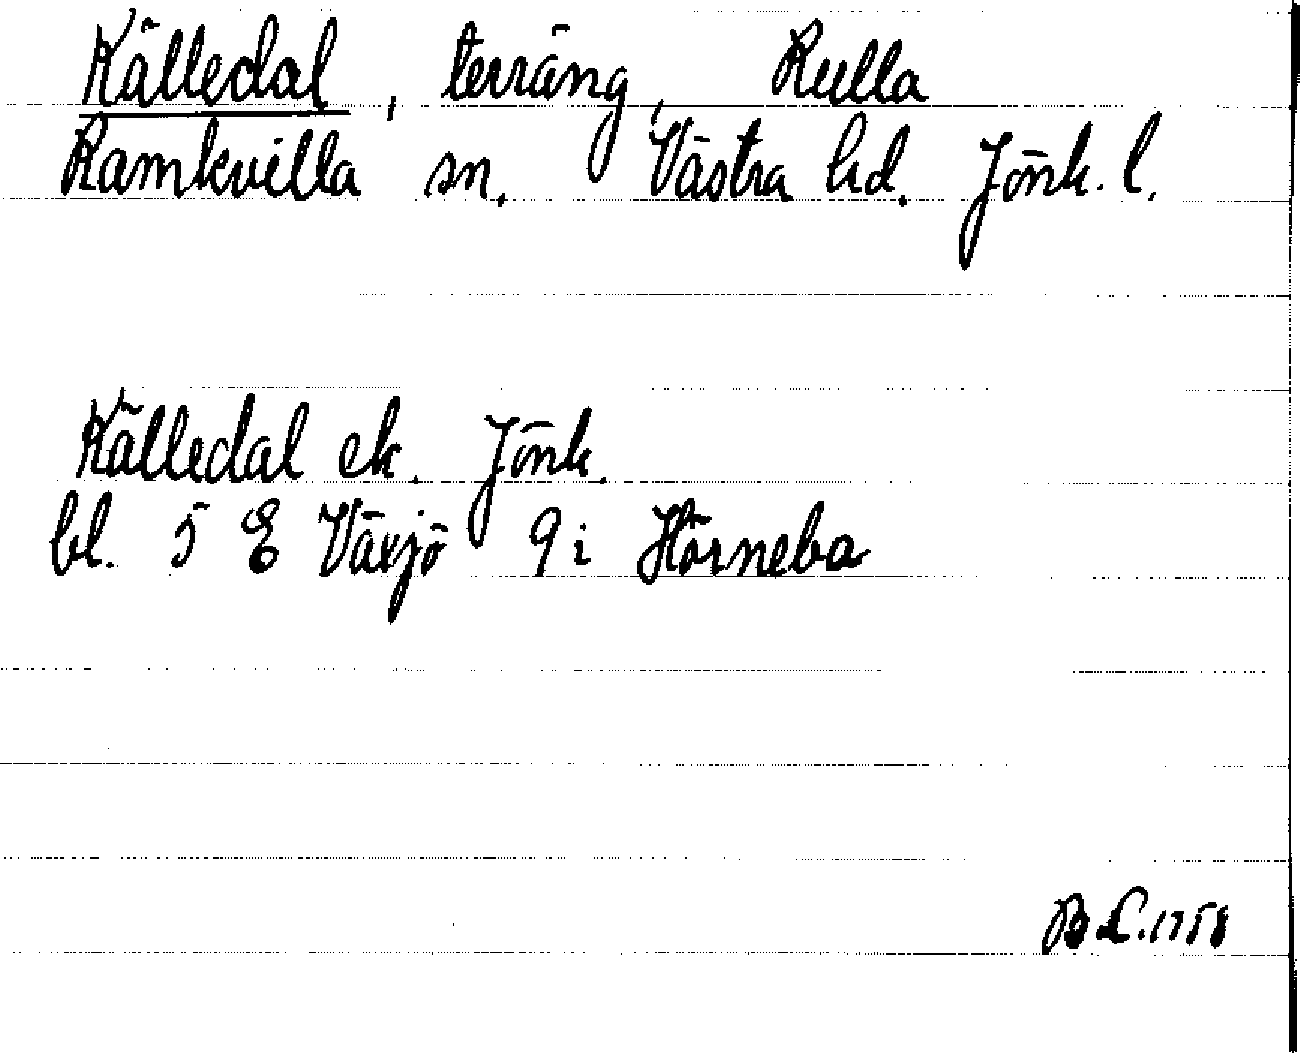 Källedal, terräng, Rulla
Ramkvilla sn. Västra hd. Jönk. l.
Källedal ek. Jönk.
bl. 5 E Växjö 9 i Hörnebo
B L. 1958